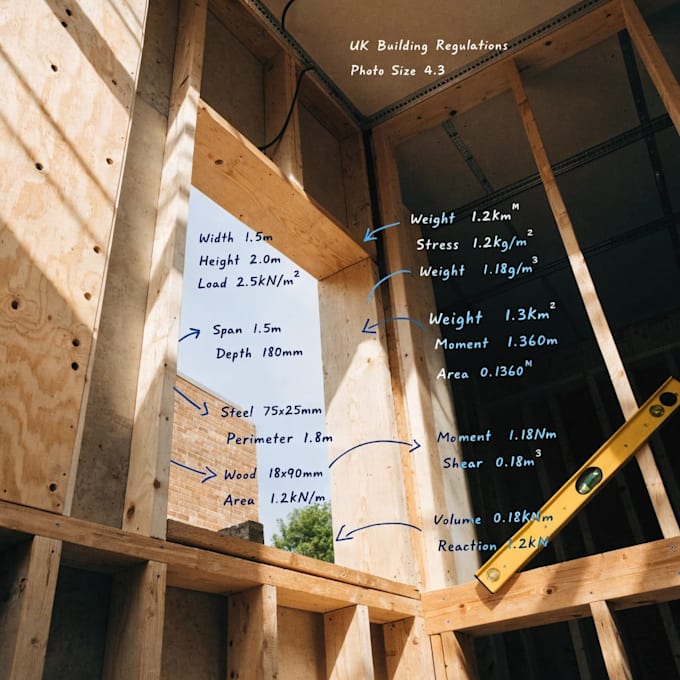 UK Building Regulations
Photo Size 4.3
Width 1.5m
Height 2.0m
Load 2.5kN/m²
Span 1.5m
Depth 180mm
Steel 75x25mm
Perimeter 1.8m
Wood 18x90mm
Area 1.2kN/m
Weight 1.2kmᴹ
Stress 1.2kg/m²
Weight 1.18g/m³
Weight 1.3km²
Moment 1.360m
Area 0.1360ᴹ
Moment 1.18Nm
Shear 0.18m³
Volume 0.18kNm
Reaction 1.2kN